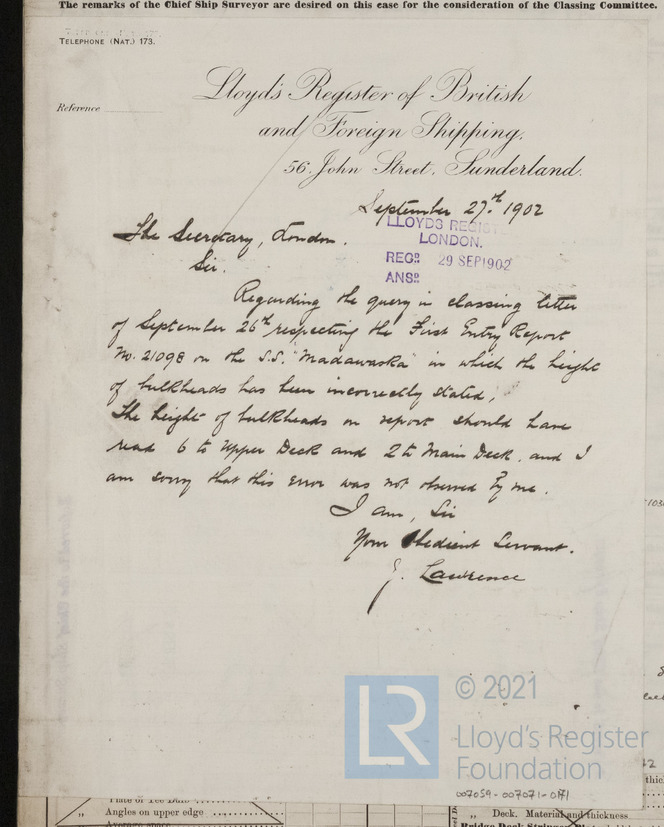 The remarks of the Chief Ship Surveyor are desired on this case for the consideration of the Classing Committee.
TELEPHONE (NAT.) 173.
Lloyd's Register of British
Reference
and Foreign Shipping,
56, John Street, Sunderland.
September 27th 1902
LLOYDS REGIST
The Secretary, London.
LONDON.
Sir.
REGD 29 SEP 1902
ANSD
Regarding the query in classing letter
of September 26th respecting the First Entry Report
No. 21098 on the S.S. "Madawaska" in which the height
of bulkheads has been incorrectly stated,
The height of bulkheads on report should have
read 6 to Upper Deck and 2 to Main Deck, and I
am sorry that this error was not observed by me.
I am, Sir
Your Obedient Servant.
J. Lawrence
LR
© 2021
Lloyd's Register
Foundation
007059-007071-0171
Angles on upper edge
„ Deck. Material and thickness